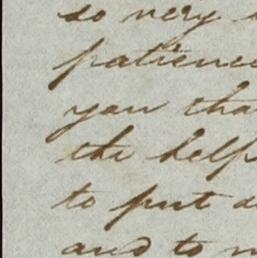 so very
patience
you tha
the help
to put a
and to